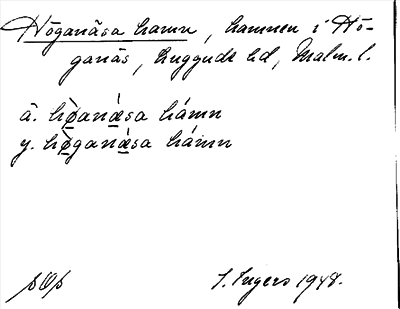 Höganäsa hamn, hamnen i Hö-
ganäs, Luggude hd, Malm. l.
ä. hø̀anǽsa hámn
y. hø̀ganǽsa hámn
I. Ingers 1948.